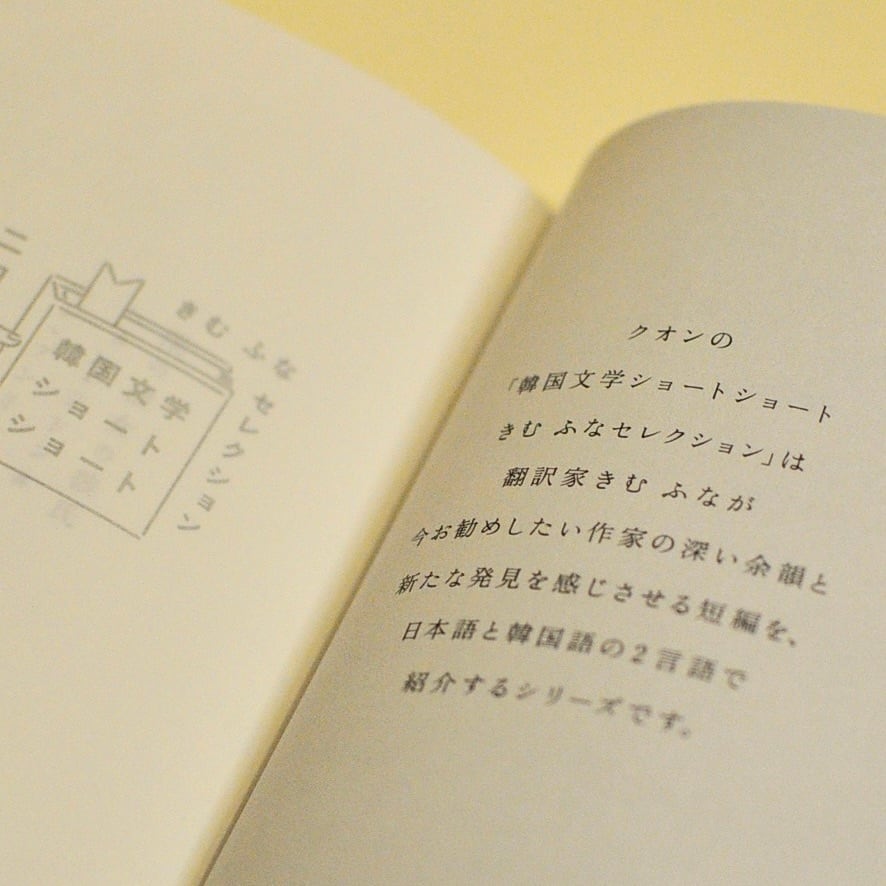 きむ ふな セレクション
韓国文学
ショート
ショート
クオンの
「韓国文学ショートショート
きむ ふなセレクション」は
翻訳家きむ ふなが
今お勧めしたい作家の深い余韻と
新たな発見を感じさせる短編を、
日本語と韓国語の2言語で
紹介するシリーズです。